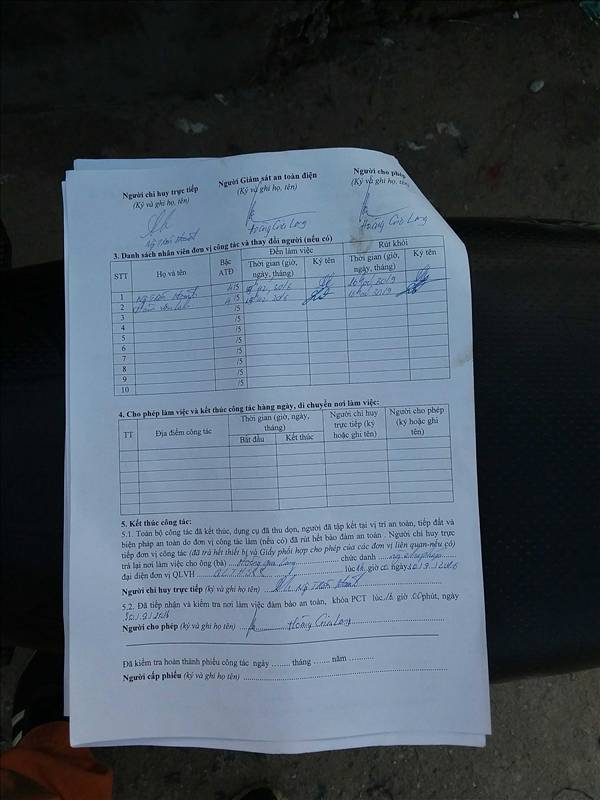 Người chỉ huy trực tiếp Người Giám sát an toàn điện Người cho phép
(Ký và ghi họ, tên) (Ký và ghi họ, tên) (Ký và ghi họ, tên)
Hoàng Gia Long Hoàng Gia Long
3. Danh sách nhân viên đơn vị công tác và thay đổi người (nếu có)
STT Họ và tên Bậc ATĐ Đến làm việc Rút khỏi
Thời gian (giờ, ngày, tháng) Ký tên Thời gian (giờ, ngày, tháng) Ký tên
1 /5
2 /5
3 /5
4 /5
5 /5
6 /5
7 /5
8 /5
9 /5
10 /5
4. Cho phép làm việc và kết thúc công tác hàng ngày, di chuyển nơi làm việc:
TT Địa điểm công tác Thời gian (giờ, ngày, tháng) Người chỉ huy trực tiếp (ký hoặc ghi tên) Người cho phép (ký hoặc ghi tên)
Bắt đầu Kết thúc
5. Kết thúc công tác:
5.1. Toàn bộ công tác đã kết thúc, dụng cụ đã thu dọn, người đã tập kết tại vị trí an toàn, tiếp đất và
biện pháp an toàn do đơn vị công tác làm (nếu có) đã rút hết bảo đảm an toàn . Người chỉ huy trực
tiếp đơn vị công tác (đã trả hết thiết bị và Giấy phối hợp cho phép của các đơn vị liên quan-nếu có)
trả lại nơi làm việc cho ông (bà) Hoàng Gia Long chức danh người cho phép
đại diện đơn vị QLVH lúc giờ ngày
Người chỉ huy trực tiếp (ký và ghi họ tên)
5.2. Đã tiếp nhận và kiểm tra nơi làm việc đảm bảo an toàn, khóa PCT lúc giờ phút, ngày
Người cho phép (ký và ghi họ tên) Hoàng Gia Long
Đã kiểm tra hoàn thành phiếu công tác ngày ....... tháng ....... năm ..........
Người cấp phiếu (ký và ghi họ tên)